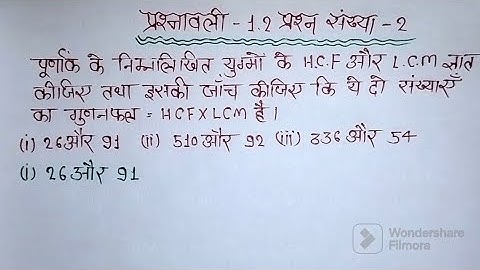 प्रश्नावली - 1.2 प्रश्न संख्या - 2
पूर्णांक के निम्नलिखित युग्मों के H.C.F और L.C.M ज्ञात
कीजिए तथा इसकी जाँच कीजिए कि ये दो संख्याएँ
का गुणनफल = HCF X LCM है।
(i) 26 और 91 (ii) 510 और 92 (iii) 336 और 54
(i) 26 और 91
Wondershare
Filmora